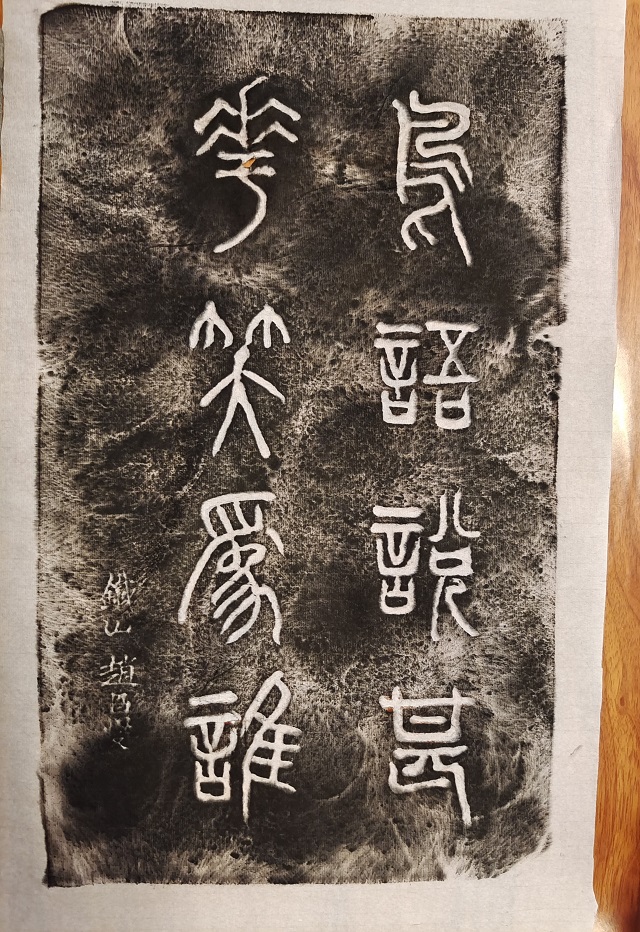 鳥語說甚
華笑為誰
鐵山趙